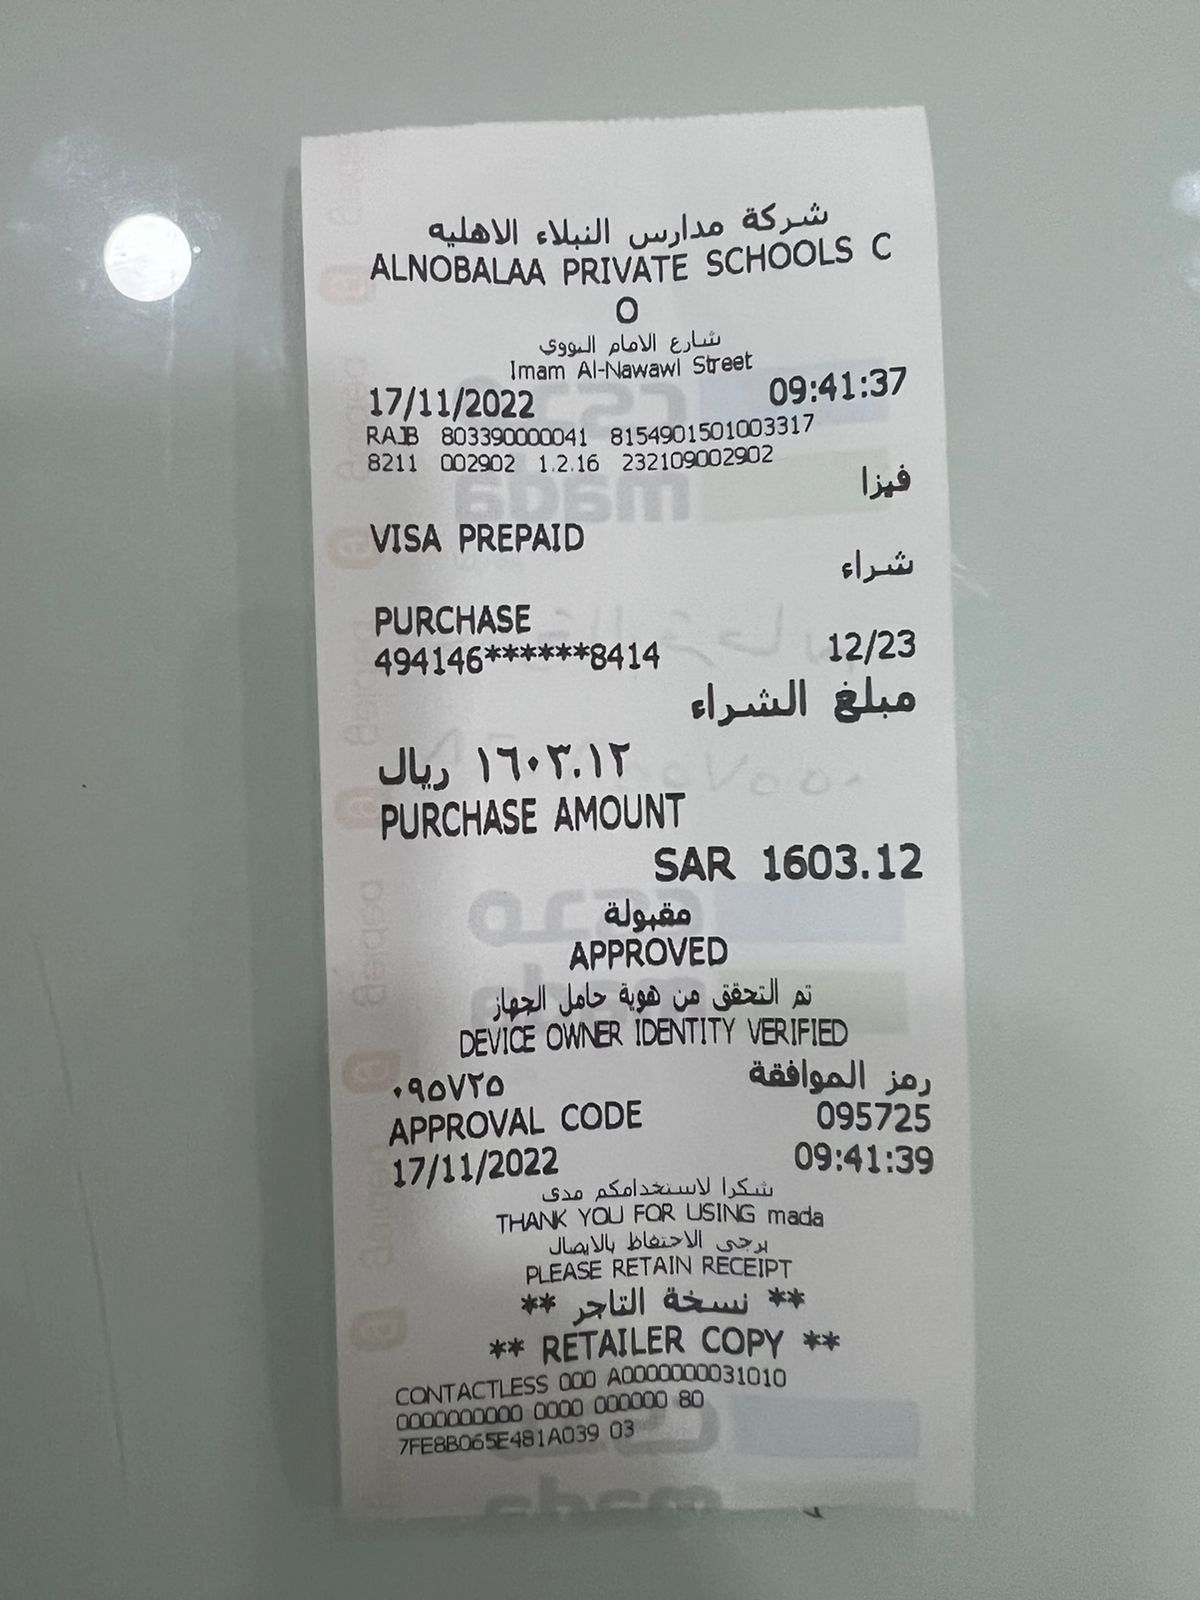 شركة مدارس النبلاء الاهليه
ALNOBALAA PRIVATE SCHOOLS C
O
شارع الامام النووي
Imam Al-Nawawi Street
17/11/2022 09:41:37
RAJB 803390000041 8154901501003317
8211 002902 1.2.16 232109002902
فيزا
VISA PREPAID
شراء
PURCHASE
494146******8414 12/23
مبلغ الشراء
١٦٠٣.١٢ ريال
PURCHASE AMOUNT
SAR 1603.12
مقبولة
APPROVED
تم التحقق من هوية حامل الجهاز
DEVICE OWNER IDENTITY VERIFIED
رمز الموافقة ٠٩٥٧٢٥
APPROVAL CODE 095725
17/11/2022 09:41:39
شكرا لاستخدامكم مدى
THANK YOU FOR USING mada
يرجى الاحتفاظ بالايصال
PLEASE RETAIN RECEIPT
** نسخة التاجر **
** RETAILER COPY **
CONTACTLESS 000 A0000000031010
0000000000 0000 000000 80
7FE8B065E481A039 03